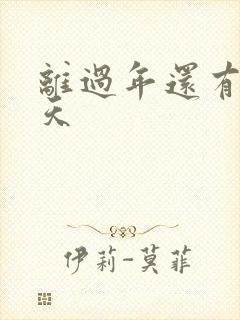 離過年還有
天
伊莉-莫菲